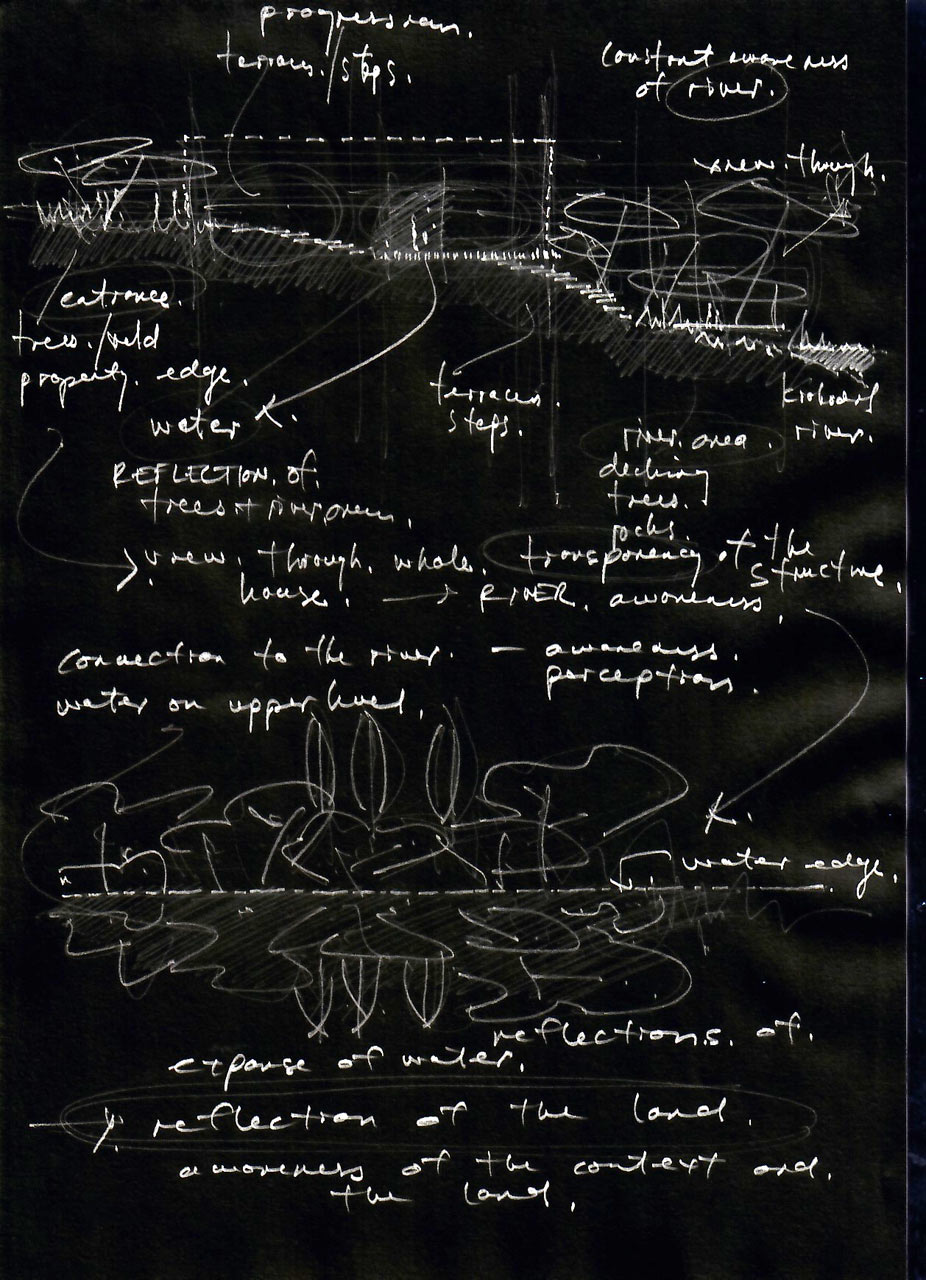 progression.
terraces/steps.
constant awareness
of river.
view through.
entrance.
trees/veld
property edge.
water
terraces.
steps.
river area.
decking
trees.
rocks.
river.
REFLECTION of
trees +
view through whole
house. → RIVER awareness,
transparency of the
structure,
connection to the river. — awareness.
perceptions.
water on upper level,
water edge,
reflections of.
expanse of water.
reflection of the land.
awareness of the context and,
the land,